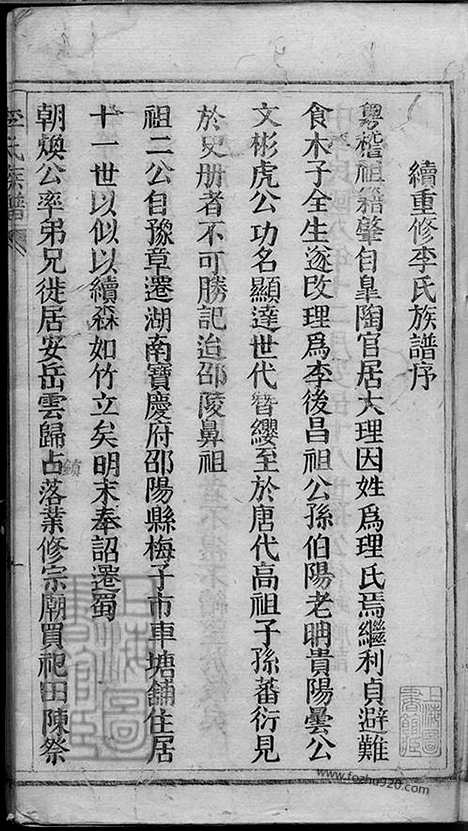 續重修李氏族譜序
粵稽祖籍肇自皐陶官居大理因姓為理氏焉繼利貞避難
食木子全生遂改理爲李後昌祖公孫伯陽老聃貴陽曇公
文彬虎公功名顯達世代簪纓至於唐代高祖子孫蕃衍見
於史册者不可勝記迨邵陵鼻祖
祖二公自豫章遷湖南寶慶府邵陽縣梅子市車塘舖住居
十一世以似以續森如竹立矣明末奉詔遷蜀
朝煥公率弟兄徙居安岳雲歸占落業修宗廟買祀田陳祭
鎮
李氏族譜
上海圖書館藏
www.fozhu920.com